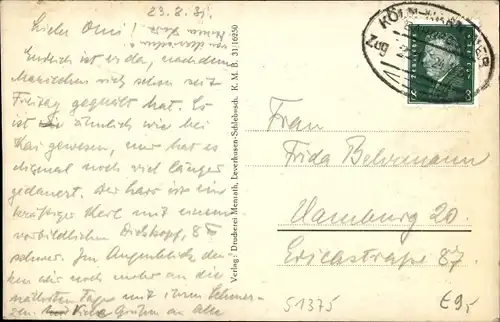 23.8.31.
Liebe Omi!
Endlich ist es da, nachdem
Mariechen sich schon seit
Freitag gequält hat. Es
ist ähnlich wie bei
Kai gewesen, nur hat es
diesmal noch viel länger
gedauert. Der ist ein
kräftiger Kerl mit einem
vorbildlichen Dickkopf, 8 ℔
schwer. Im Augenblick
wir noch mehr an die
nächsten Tage mit ihren Schmer-
zen. Viele Grüßen an Alle
Verlag: Druckerei Menrath, Leverkusen-Schlebusch. K. M. B. 31|16250
KÖLN
Zug
Frau
Frida Behrmann
Hamburg 20.
Ericastraße 87.
S1375
€9,-